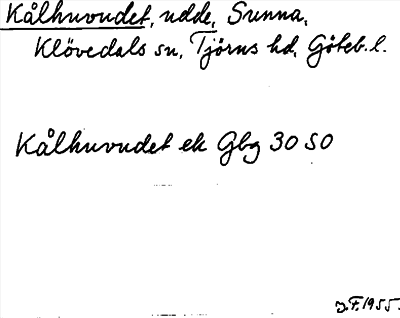 Kålhuvudet, udde, Sunna,
Klövedals sn, Tjörns hd, Göteb. l.
Kålhuvudet ek Gbg 30 SO
J.F. 1955.